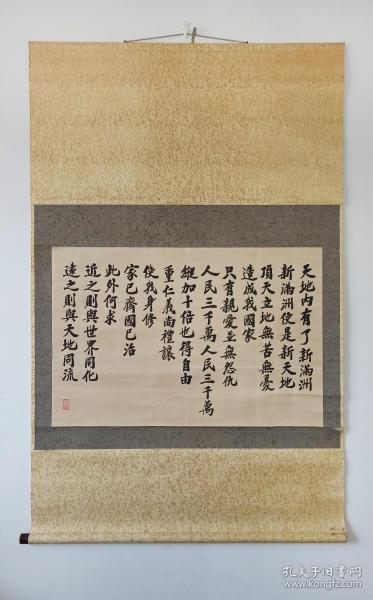 天地內有了新滿洲
新滿洲便是新天地
頂天立地無苦無憂
造成我國家
只有親愛並無怨仇
人民三千萬人民三千萬
縱加十倍也得自由
重仁義尚禮讓
使我身修
家已齊國已治
此外何求
近之則與世界同化
遠之則與天地同流
孔夫子旧书网